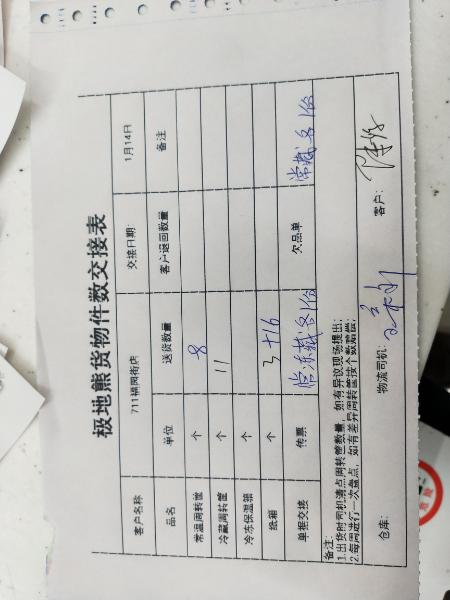 极地熊货物件数交接表
客户名称 711福民街店 交接日期: 1月14日
品名 单位 送货数量 客户退回数量 备注
常温周转筐 个 8
冷藏周转筐 个 11
冷冻保温箱 个
纸箱 个 3+16
单据交接 传票 常冻藏各1份 欠品单 常藏各1份
备注:
1.出货时司机清点周转筐数量,如有异议现场提出;
2.每周进行一次盘点,如有差异周转筐按个数赔偿;
仓库: 物流司机: 客户: